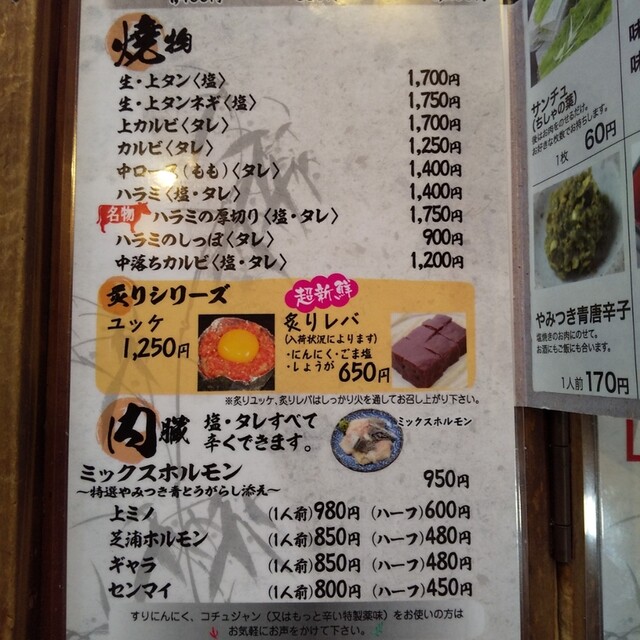 焼物
生・上タン〈塩〉 1,700円
生・上タンネギ〈塩〉 1,750円
上カルビ〈タレ〉 1,700円
カルビ〈タレ〉 1,250円
中ロース(もも)〈タレ〉 1,400円
ハラミ〈塩・タレ〉 1,400円
名物 ハラミの厚切り〈塩・タレ〉 1,750円
ハラミのしっぽ〈タレ〉 900円
中落ちカルビ〈塩・タレ〉 1,200円
炙りシリーズ
超新鮮
ユッケ
1,250円
炙りレバ
(入荷状況によります)
・にんにく・ごま塩
・しょうが 650円
※炙りユッケ、炙りレバはしっかり火を通してお召し上がり下さい。
内臓
塩・タレすべて
辛くできます。
ミックスホルモン
ミックスホルモン 950円
〜特選やみつき青とうがらし添え〜
上ミノ (1人前)980円 (ハーフ)600円
芝浦ホルモン (1人前)850円 (ハーフ)480円
ギャラ (1人前)850円 (ハーフ)480円
センマイ (1人前)800円 (ハーフ)450円
すりにんにく、コチュジャン(又はもっと辛い特製薬味)をお使いの方は
お気軽にお声をかけて下さい。
サンチュ
(ちしゃの葉)
後はお肉をのせるだけ。
お好きな枚数でお持ちします。
1枚 60円
やみつき青唐辛子
塩焼きのお肉にのせて。
お酒にもご飯にも合います。
1人前 170円
味
味